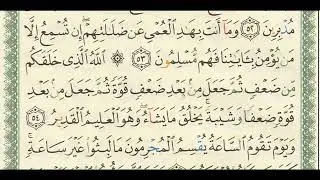 مُدْبِرِينَ ٥٢ وَمَا أَنتَ بِهَٰدِ الْعُمْيِ عَن ضَلَٰلَتِهِمْ إِن تُسْمِعُ إِلَّا
مَن يُؤْمِنُ بِـَٔايَٰتِنَا فَهُم مُّسْلِمُونَ ٥٣ ۞ اللَّهُ الَّذِي خَلَقَكُم
مِّن ضَعْفٍ ثُمَّ جَعَلَ مِن بَعْدِ ضَعْفٍ قُوَّةً ثُمَّ جَعَلَ مِن بَعْدِ
قُوَّةٍ ضَعْفًا وَشَيْبَةً يَخْلُقُ مَا يَشَاءُ وَهُوَ الْعَلِيمُ الْقَدِيرُ ٥٤
وَيَوْمَ تَقُومُ السَّاعَةُ يُقْسِمُ الْمُجْرِمُونَ مَا لَبِثُوا غَيْرَ سَاعَةٍ